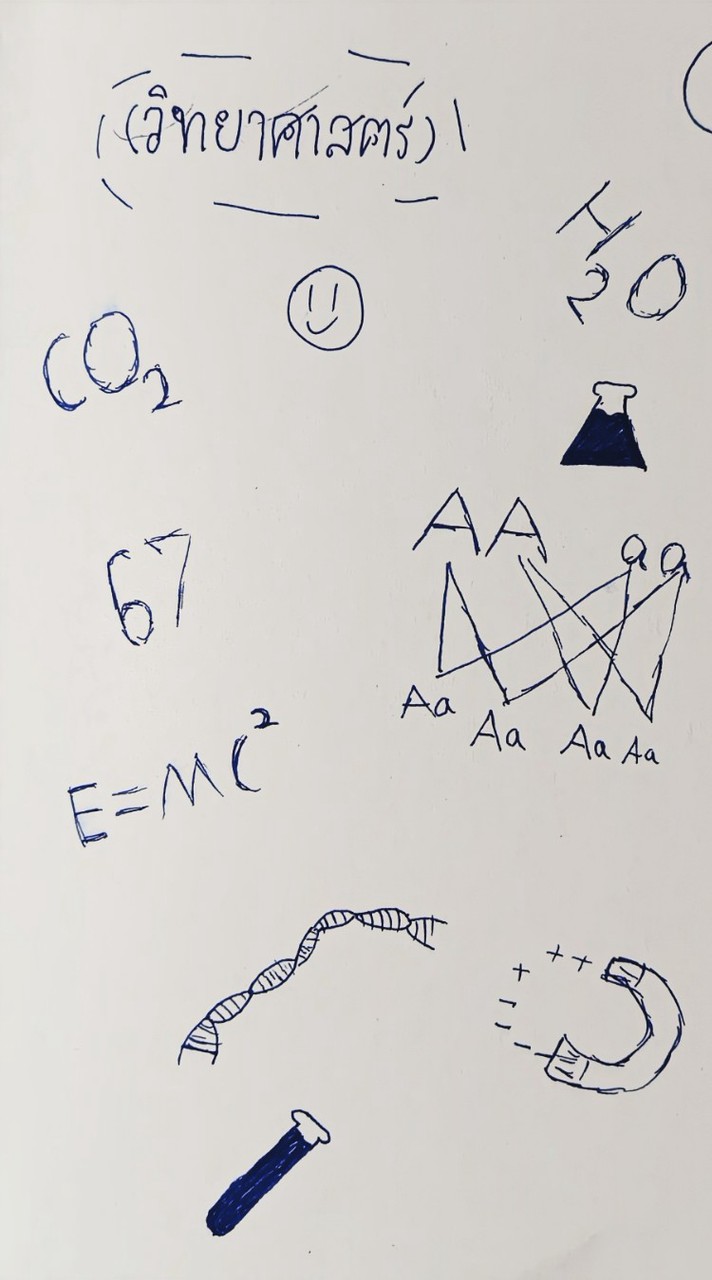 (วิทยาศาสตร์)
H2O
CO2
67
AA aa
Aa Aa Aa Aa
E=MC²
+ + +
- - -